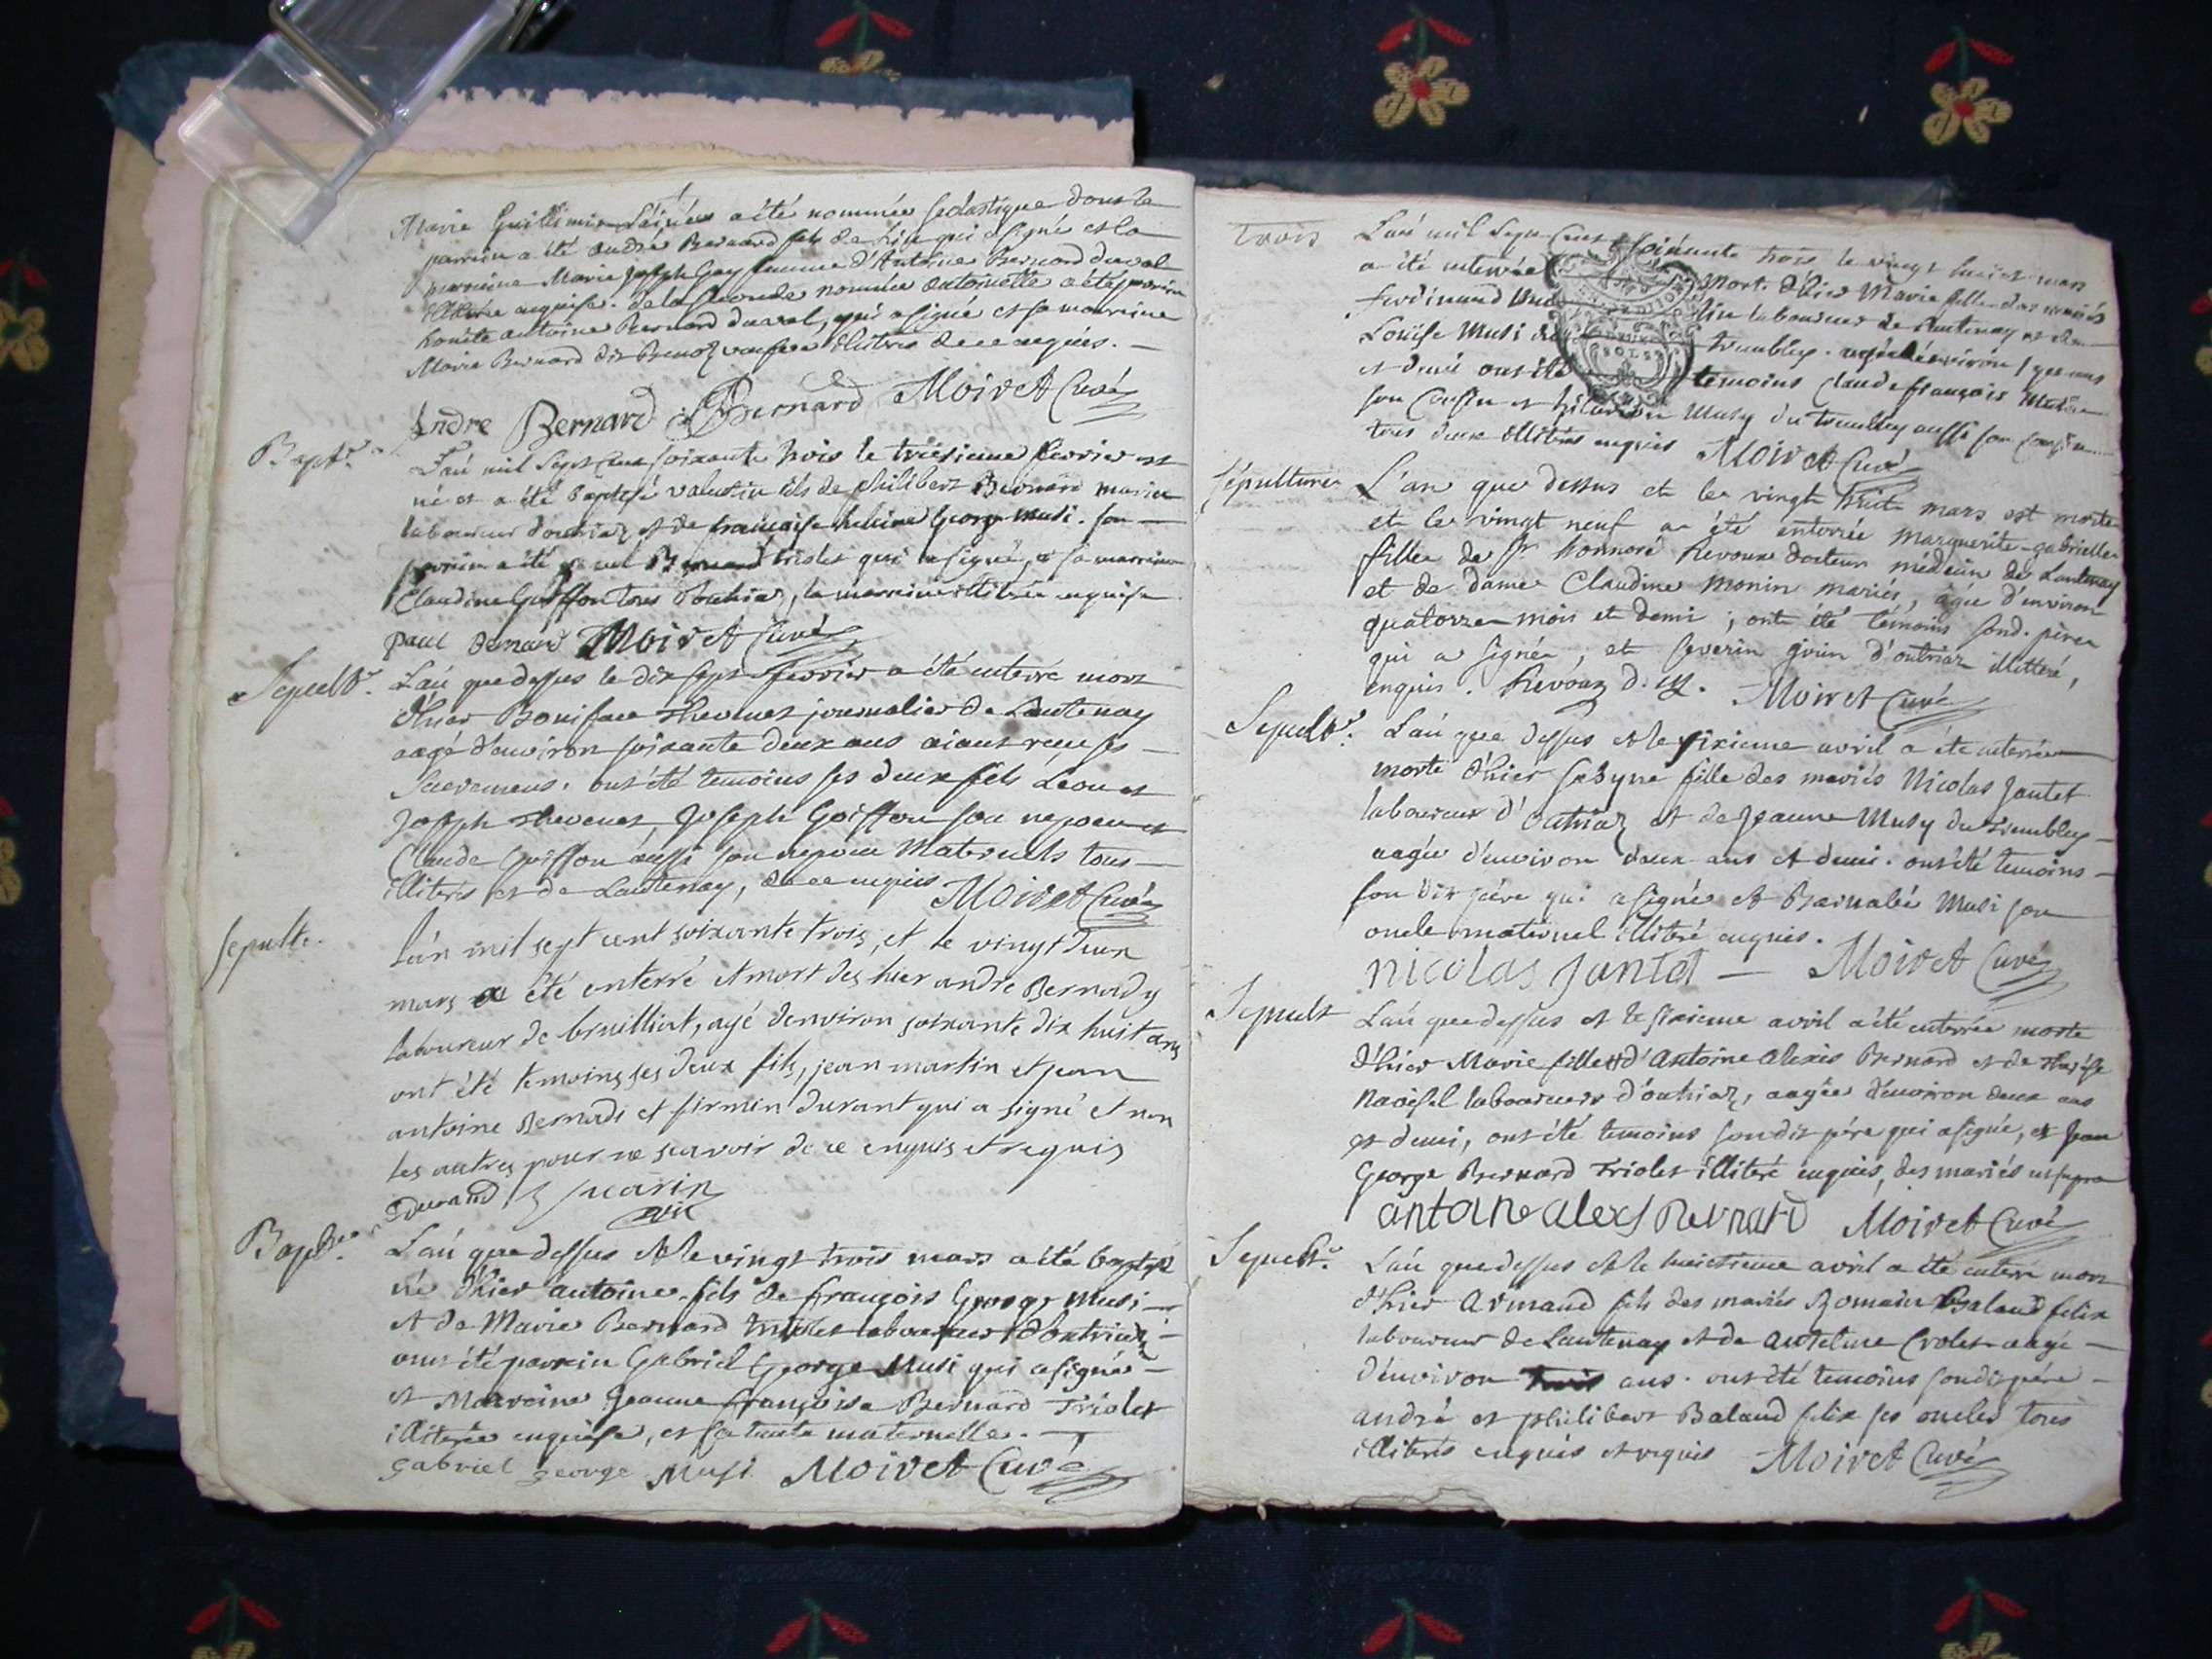 Marie a été nommée scolastique dont le
parrein a été andré Bernard fils de qui a signé et la
marreine Marie joseph Gay femme d'Antoine Bernard duval
illitérée enquise. de la seconde nommée antoinette a été parrein
honête antoine Bernard duval, qui a signé et sa marreine
Marie Bernard dit illitérée de ce enquis.
Andre Bernard Bernard Moiret Curé
Bapt.e
L'an mil sept cent soixante trois le treisieme fevrier est
né et a été baptisé valentin fils de philibert Bernard
laboureur d'outriaz et de françoise George Musi. son
parrein a été Bernard triolet qui a signé, et sa marreine
Claudine Goiffon tous d'outriaz, la marreine illitérée enquise
paul Bernard Moiret Curé
Sepult.e
L'an que dessus le dix sept fevrier a été enterré mort
d'hier Boniface thevenet journalier de Lantenay
aagé d'environ soixante deux ans aiant reçu ses
Sacremens. ont été temoins ses deux fils Léon et
Joseph thevenet, Joseph Goiffon son nepveu et
Claude Goiffon aussi son nepveu Maternels tous
illiterés et de Lantenay, de ce enquis Moiret Curé
sepulte.
L'an mil sept cent soixante trois, et le vingt deux
mars a été enterré et mort des hier andre Bernady
laboureur de brailliat, agé denviron soixante dix huit ans
ont été temoins ses deux fils, jean martin et jean
antoine Bernadi et firmin durant qui a signé et non
les autres pour ne scavoir de ce enquis et requis
Durand
Bapt.e
L'an que dessus et le vingt trois mars a été baptisé
né d'hier antoine fils de françois George Musi
et de Marie Bernard triolet laboureur d'outriaz
ont été parrein Gabriel George Musi qui a signé
et Marreine Jeanne françoise Bernard Triolet
illiterée enquise, et sa tante maternelle.
gabriel george Musi Moiret Curé
trois
L'an mil sept cent soixante trois le vingt huit mars
a été enterrée mort d'hier Marie fille des mariés
ferdinand laboureur de Lantenay et de
Louise Musi du tremblay. agée d'environ ans
et demi ont été temoins Claude françois
son Cousin et hilarion Musy du tremblay aussi son cousin
tous deux illiterés enquis Moiret Curé
Sépulture
L'an que dessus et le vingt huit mars est morte
et le vingt neuf a été enterrée Marguerite-gabrielle
fille de Sr. honnoré Revoux docteur médecin de Lantenay
et de dame Claudine Monin mariés, agée d'environ
quatorze mois et demi ; ont été témoins sond. père
qui a signé, et Severin d'outriaz illitteré,
enquis. Revoux d. M. Moiret Curé
Sepult.e
L'an que dessus et le sixieme avril a été enterrée
morte d'hier Sabyne fille des mariés Nicolas Jantet
laboureur d'outriaz et de Jeanne Musy du tremblay
aagée d'environ deux ans et demi. ont été temoins
son dit père qui a signé et Barnabé Musi son
oncle maternel illiteré enquis.
nicolas jantet — Moiret Curé
Sepult
L'an que dessus et le sixieme avril a été enterrée morte
d'hier Marie fille d'Antoine alexis Bernard et de therese
laboureur d'outriaz, aagée d'environ deux ans
et demi, ont été temoins son dit père qui a signé, et Jean
George Bernard Triolet illiteré enquis, des mariés ut supra
antoine alexs Bernard Moiret Curé
Sepult.e
L'an que dessus et le huictieme avril a été enterré mort
d'hier Armand fils des mariés Romain Baland felix
laboureur de Lantenay et de antelme Crolet aagé
d'environ trois ans. ont été temoins son dit père
andré et philibert Baland felix ses oncles tous
illiterés enquis et requis Moiret Curé